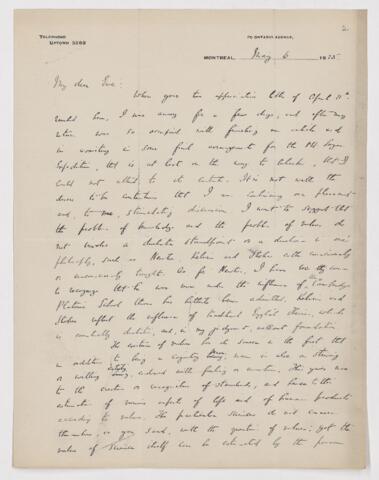 2
TELEPHONE
UPTOWN 3268
70 ONTARIO AVENUE,
MONTREAL, May 6 1925
My dear
When your two appreciative letters of April 11th
reached here, I was away for a few days, and after my
return was so occupied with finishing an article and
in assisting in some final arrangements for the
Expedition, that is at last on the way to that I
could not attend to It is not with the
desire to be contentious that I am continuing our pleasant
and, to me, stimulating discussion. I want to suggest that
the problem of knowledge and the problem of values do
not involve a dualistic standpoint or a dualism in one's
philosophy, such as Newton Kelvin and Stokes either consciously
or unconsciously taught. As for Newton, I have
to recognize that he was more under the influence of the Cambridge
Platonic School than has hitherto been admitted. Kelvin and
Stokes reflect the influence of traditional English
is essentially dualistic, and, in my judgment, without foundation.
The notion of values has its source in the fact that
in addition to being a cognitive being, man is also a striving
or willing being, endowed with feeling or emotion. This gives rise
to the creation or recognition of standards, and hence to the
estimate of various aspects of life and of human products
according to values. The particular sciences do not concern
themselves, as you said, with the question of values; yet the
value of science itself can be estimated by the person